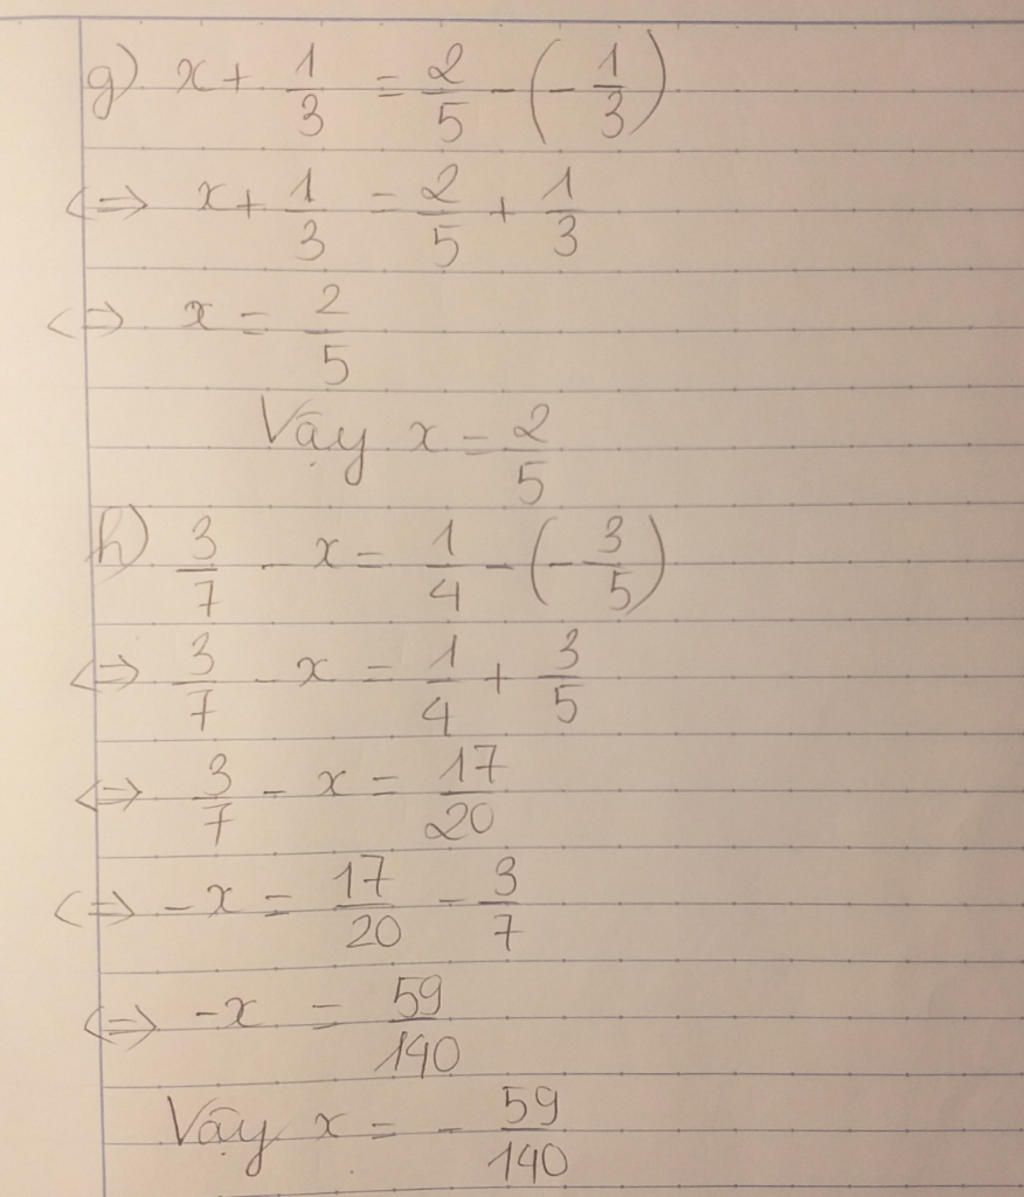 g) x + 1/3 = 2/5 - (-1/3)
<=> x + 1/3 = 2/5 + 1/3
<=> x = 2/5
Vậy x = 2/5
h) 3/7 - x = 1/4 - (-3/5)
<=> 3/7 - x = 1/4 + 3/5
<=> 3/7 - x = 17/20
<=> -x = 17/20 - 3/7
<=> -x = 59/140
Vậy x = -59/140